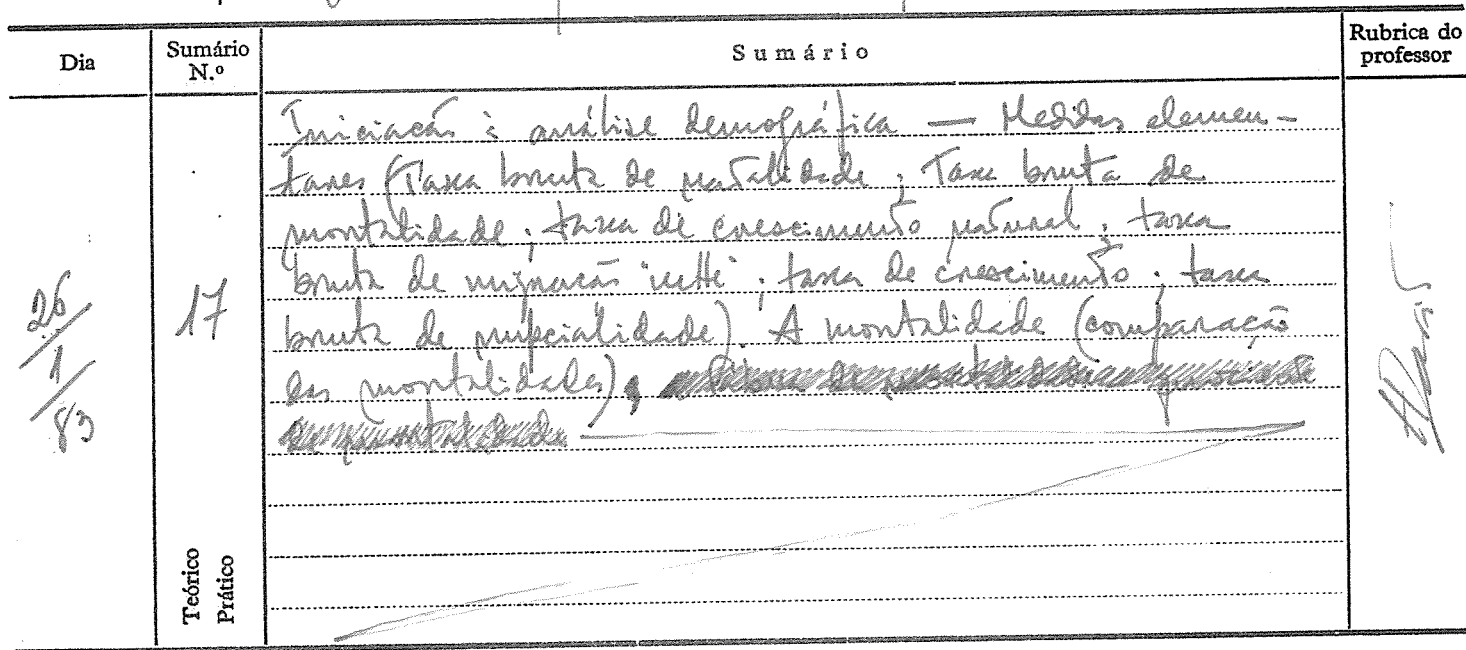 Dia
Sumário N.º
Sumário
Rubrica do professor
26/1/83
17
Teórico
Prático
Iniciação à análise demográfica — Medidas elemen-
tares (Taxa bruta de natalidade; Taxa bruta de
mortalidade; taxa de crescimento natural; taxa
bruta de migração "nette"; taxa de crescimento; taxa
bruta de nupcialidade). A mortalidade (comparação
das mortalidades)